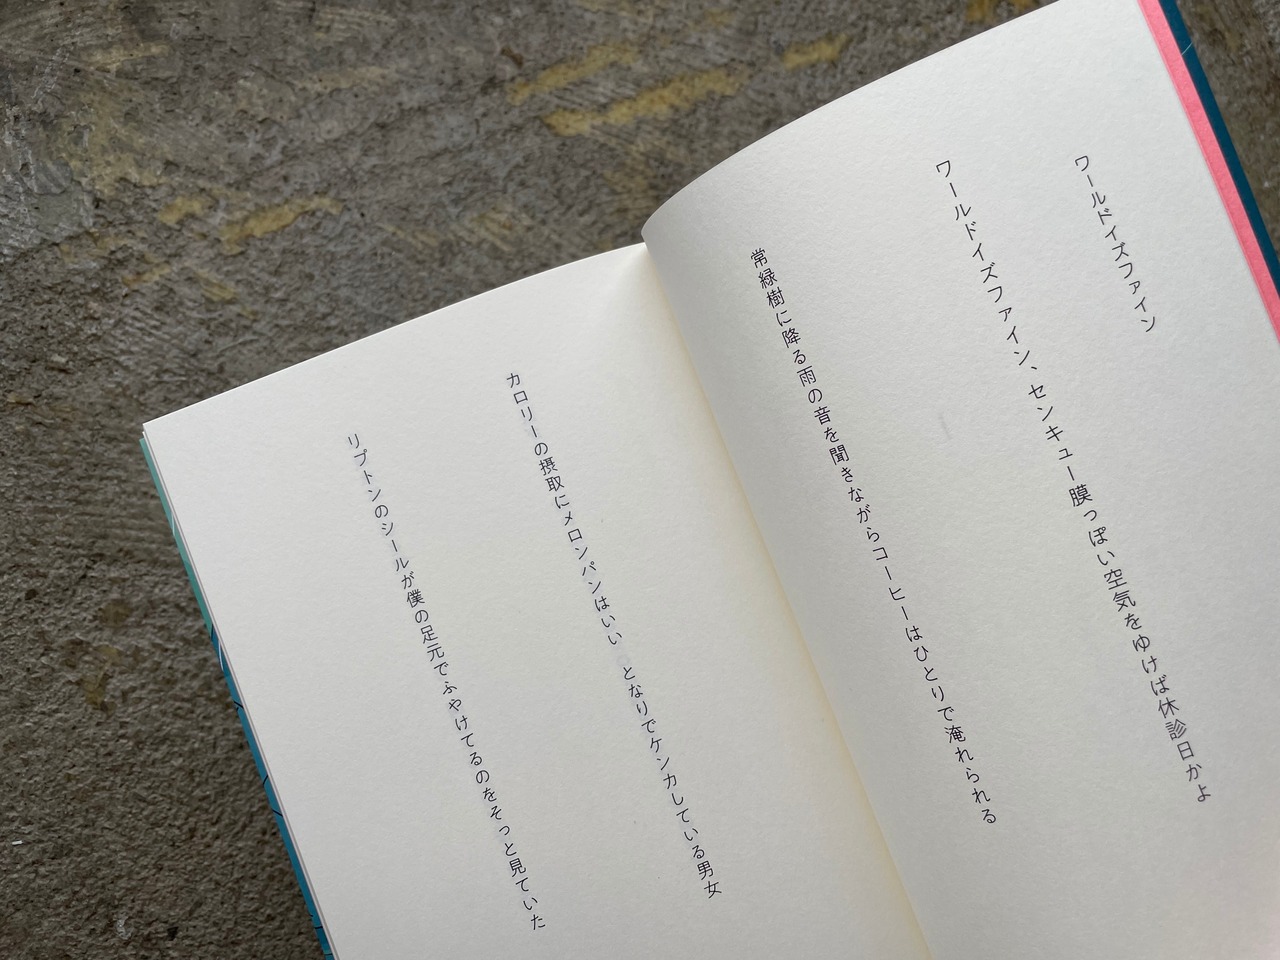 ワールドイズファイン
ワールドイズファイン、センキュー膜っぽい空気をゆけば休診日かよ
常緑樹に降る雨の音を聞きながらコーヒーはひとりで淹れられる
カロリーの摂取にメロンパンはいい　となりでケンカしている男女
リプトンのシールが僕の足元でふやけてるのをそっと見ていた